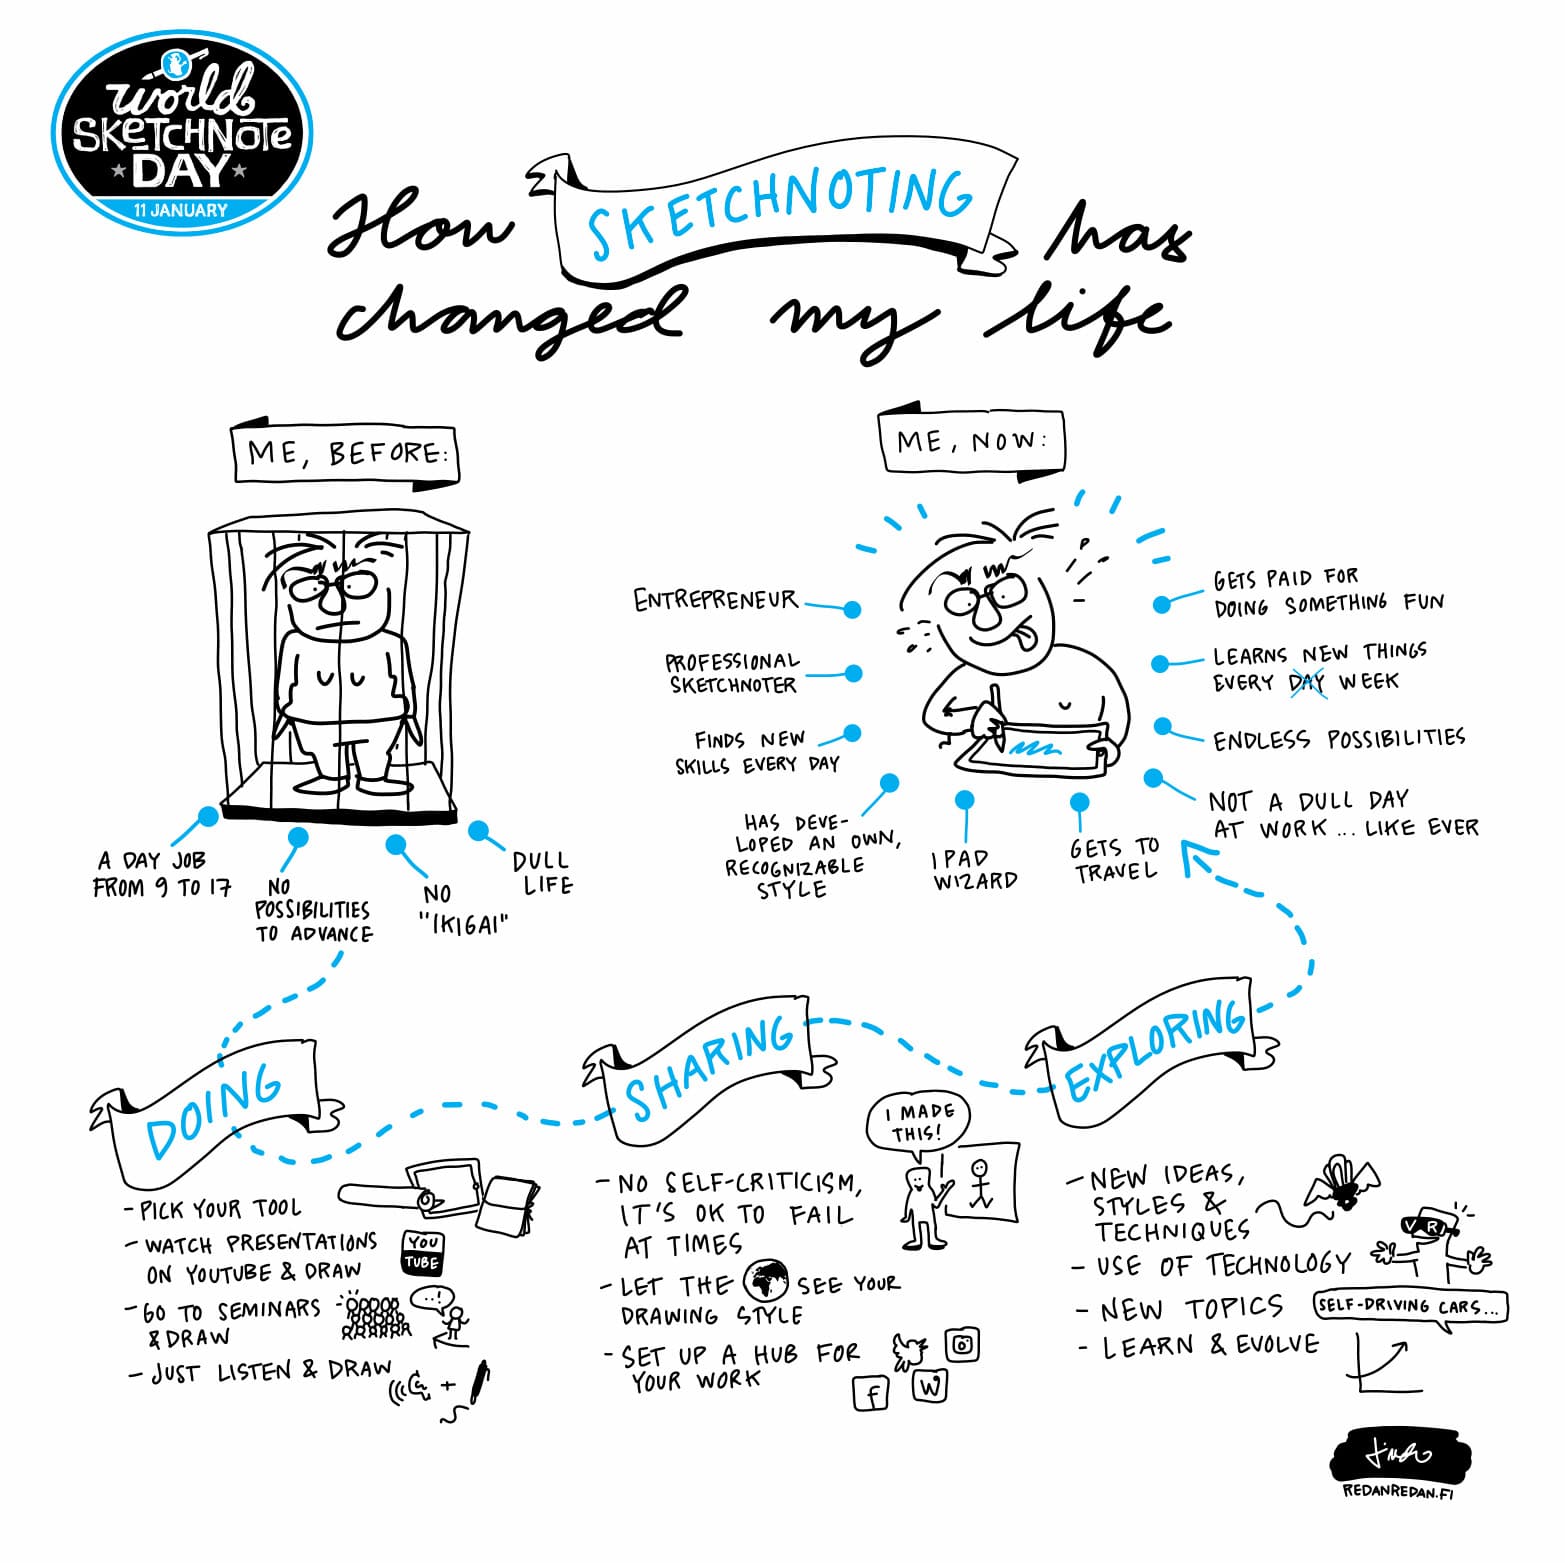 World
SKETCHNOTE
DAY
11 JANUARY
How SKETCHNOTING has
changed my life
ME, BEFORE:
A DAY JOB
FROM 9 TO 17
NO
POSSIBILITIES
TO ADVANCE
NO
"IKIGAI"
DULL
LIFE
ME, NOW:
ENTREPRENEUR
PROFESSIONAL
SKETCHNOTER
FINDS NEW
SKILLS EVERY DAY
HAS DEVE-
LOPED AN OWN,
RECOGNIZABLE
STYLE
IPAD
WIZARD
GETS TO
TRAVEL
GETS PAID FOR
DOING SOMETHING FUN
LEARNS NEW THINGS
EVERY DAY WEEK
ENDLESS POSSIBILITIES
NOT A DULL DAY
AT WORK ... LIKE EVER
DOING
- PICK YOUR TOOL
- WATCH PRESENTATIONS
ON YOUTUBE & DRAW
YOU
TUBE
- GO TO SEMINARS
& DRAW
...!
- JUST LISTEN & DRAW
+
SHARING
I MADE
THIS!
- NO SELF-CRITICISM,
IT'S OK TO FAIL
AT TIMES
- LET THE SEE YOUR
DRAWING STYLE
- SET UP A HUB FOR
YOUR WORK
f
W
EXPLORING
- NEW IDEAS,
STYLES &
TECHNIQUES
- USE OF TECHNOLOGY
VR
- NEW TOPICS
SELF-DRIVING CARS...
- LEARN & EVOLVE
REDANREDAN.FI